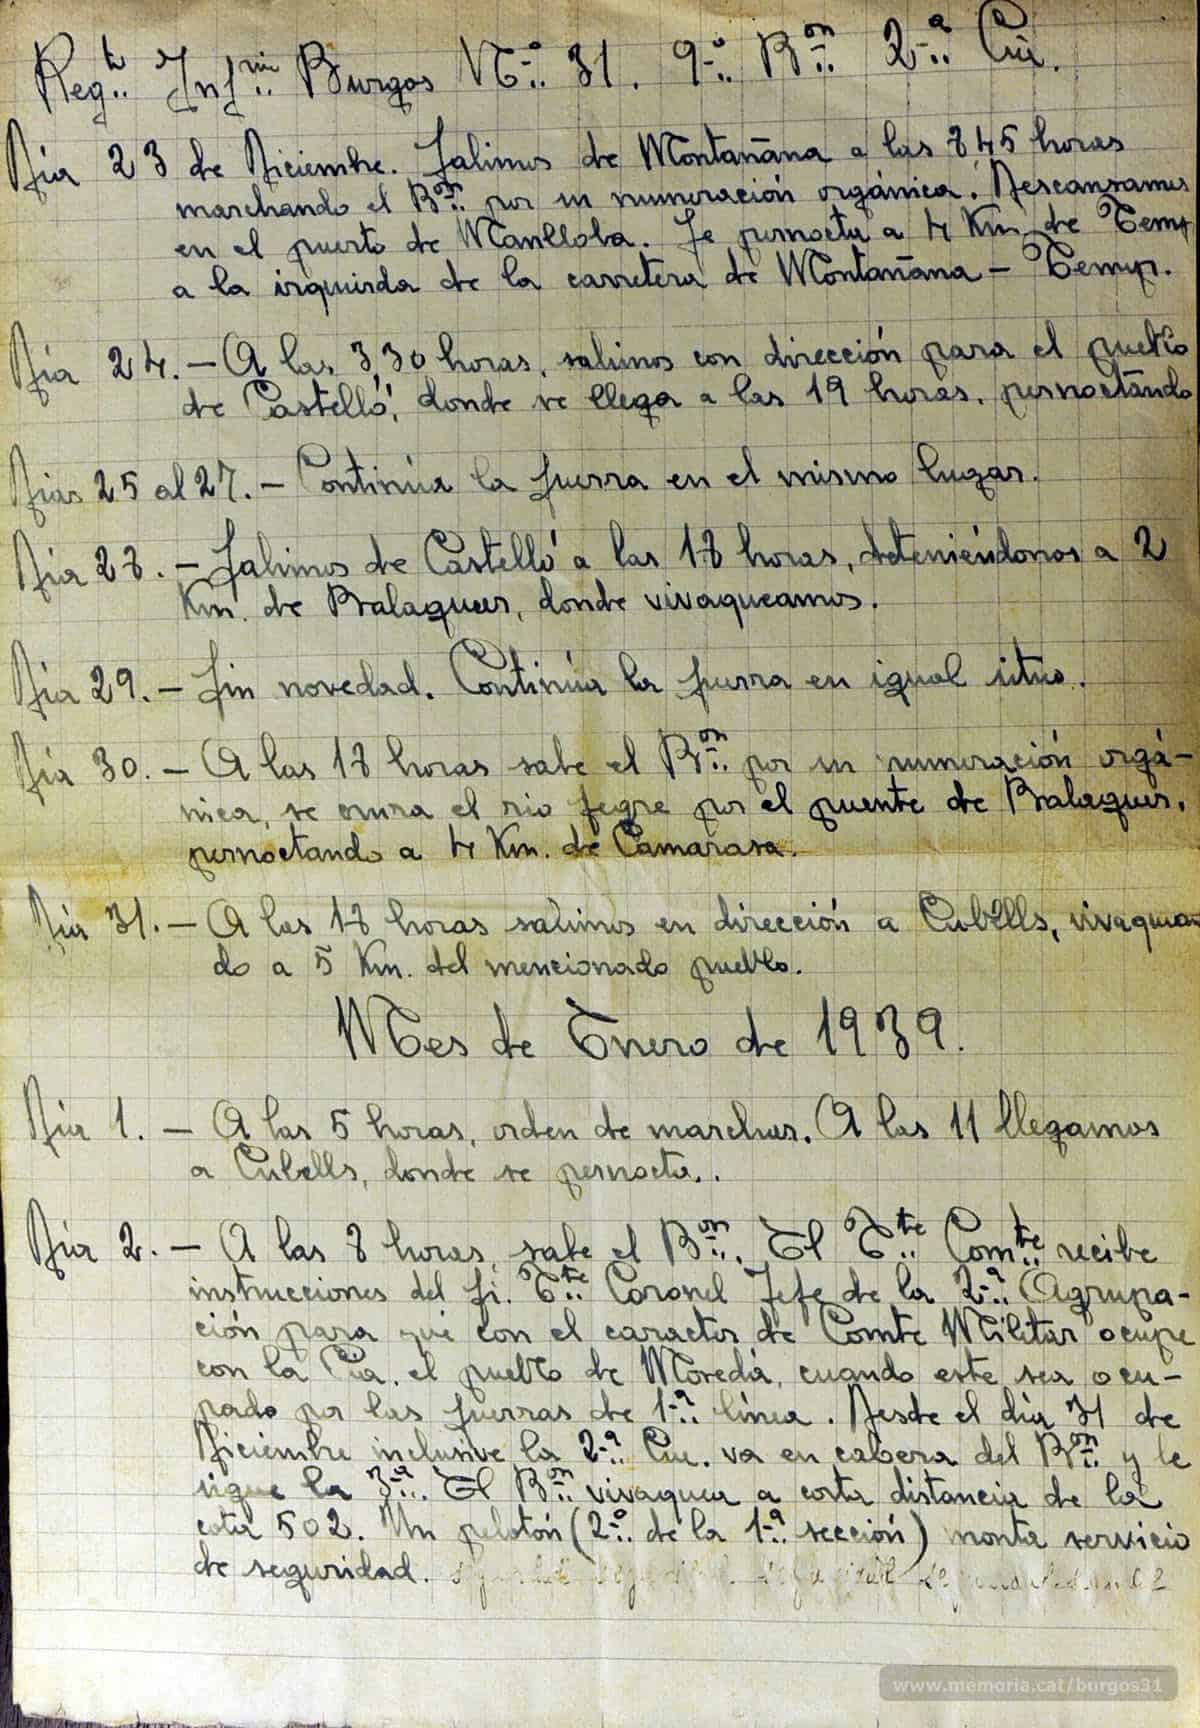 Regto Infria Burgos Nº 31. 9º Bon 2ª Cía.
Día 23 de Diciembre. Salimos de Montañana a las 8'45 horas
marchando el Bon por su numeración orgánica. Descansamos
en el puerto de Manlloba. Se pernocta a 4 Km. de Temp
a la izquierda de la carretera de Montañana - Temp.
Día 24. - A las 3'30 horas, salimos con dirección para el pueblo
de Castelló, donde se llega a las 19 horas, pernoctando
Días 25 al 27. - Continúa la fuerza en el mismo lugar.
Día 28. - Salimos de Castelló a las 18 horas, deteniéndonos a 2
Km. de Balaguer, donde vivaqueamos.
Día 29. - Sin novedad. Continúa la fuerza en igual sitio.
Día 30. - A las 18 horas sale el Bon por su numeración orgá-
nica, se cruza el rio Segre por el puente de Balaguer,
pernoctando a 4 Km. de Camarasa.
Día 31. - A las 18 horas salimos en dirección a Cubells, vivaquean
do a 5 Km. del mencionado pueblo.
Mes de Enero de 1939.
Día 1. - A las 5 horas, orden de marchar. A las 11 llegamos
a Cubells, donde se pernocta.
Día 2. - A las 8 horas, sale el Bon. El Tte Comte recibe
instrucciones del Sr. Tte Coronel Jefe de la 2ª Agrupa-
ción para que con el caracter de Comte Militar ocupe
con la Cía. el pueblo de Moredá, cuando este sea ocu-
pado por las fuerzas de 1ª línea. Desde el día 31 de
Diciembre inclusive la 2ª Cía. va en cabeza del Bon y le
sigue la 3ª. El Bon vivaquea a corta distancia de la
cota 502. Un pelotón (2º de la 1ª sección) monta servicio
de seguridad.
www.memoria.cat/burgos31